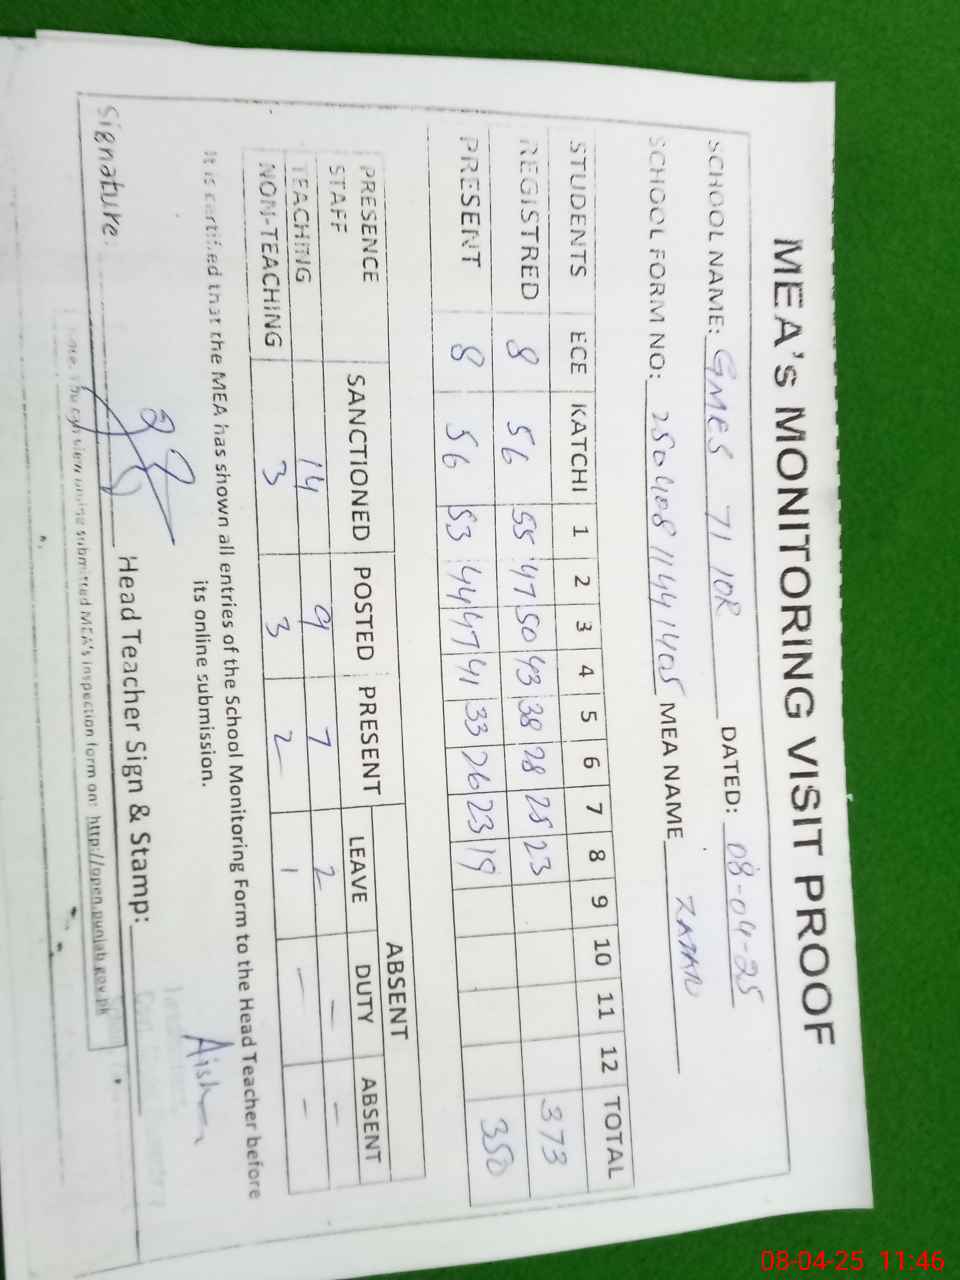 MEA's MONITORING VISIT PROOF
SCHOOL NAME: GMES 71 10R DATED: 08-04-25
SCHOOL FORM NO: 25040811441405 MEA NAME ZAMAN
STUDENTS ECE KATCHI 1 2 3 4 5 6 7 8 9 10 11 12 TOTAL
REGISTRED 8 56 55 47 50 43 38 28 25 23 373
PRESENT 8 56 53 44 47 41 33 26 23 19 350
ABSENT
PRESENCE SANCTIONED POSTED PRESENT LEAVE DUTY ABSENT
STAFF
TEACHING 14 9 7 2 - -
NON-TEACHING 3 3 2 1 - -
It is certified that the MEA has shown all entries of the School Monitoring Form to the Head Teacher before
its online submission.
Signature: Head Teacher Sign & Stamp:
submitted MEA's inspection form on: http://open.punjab.gov.pk
08-04-25 11:46